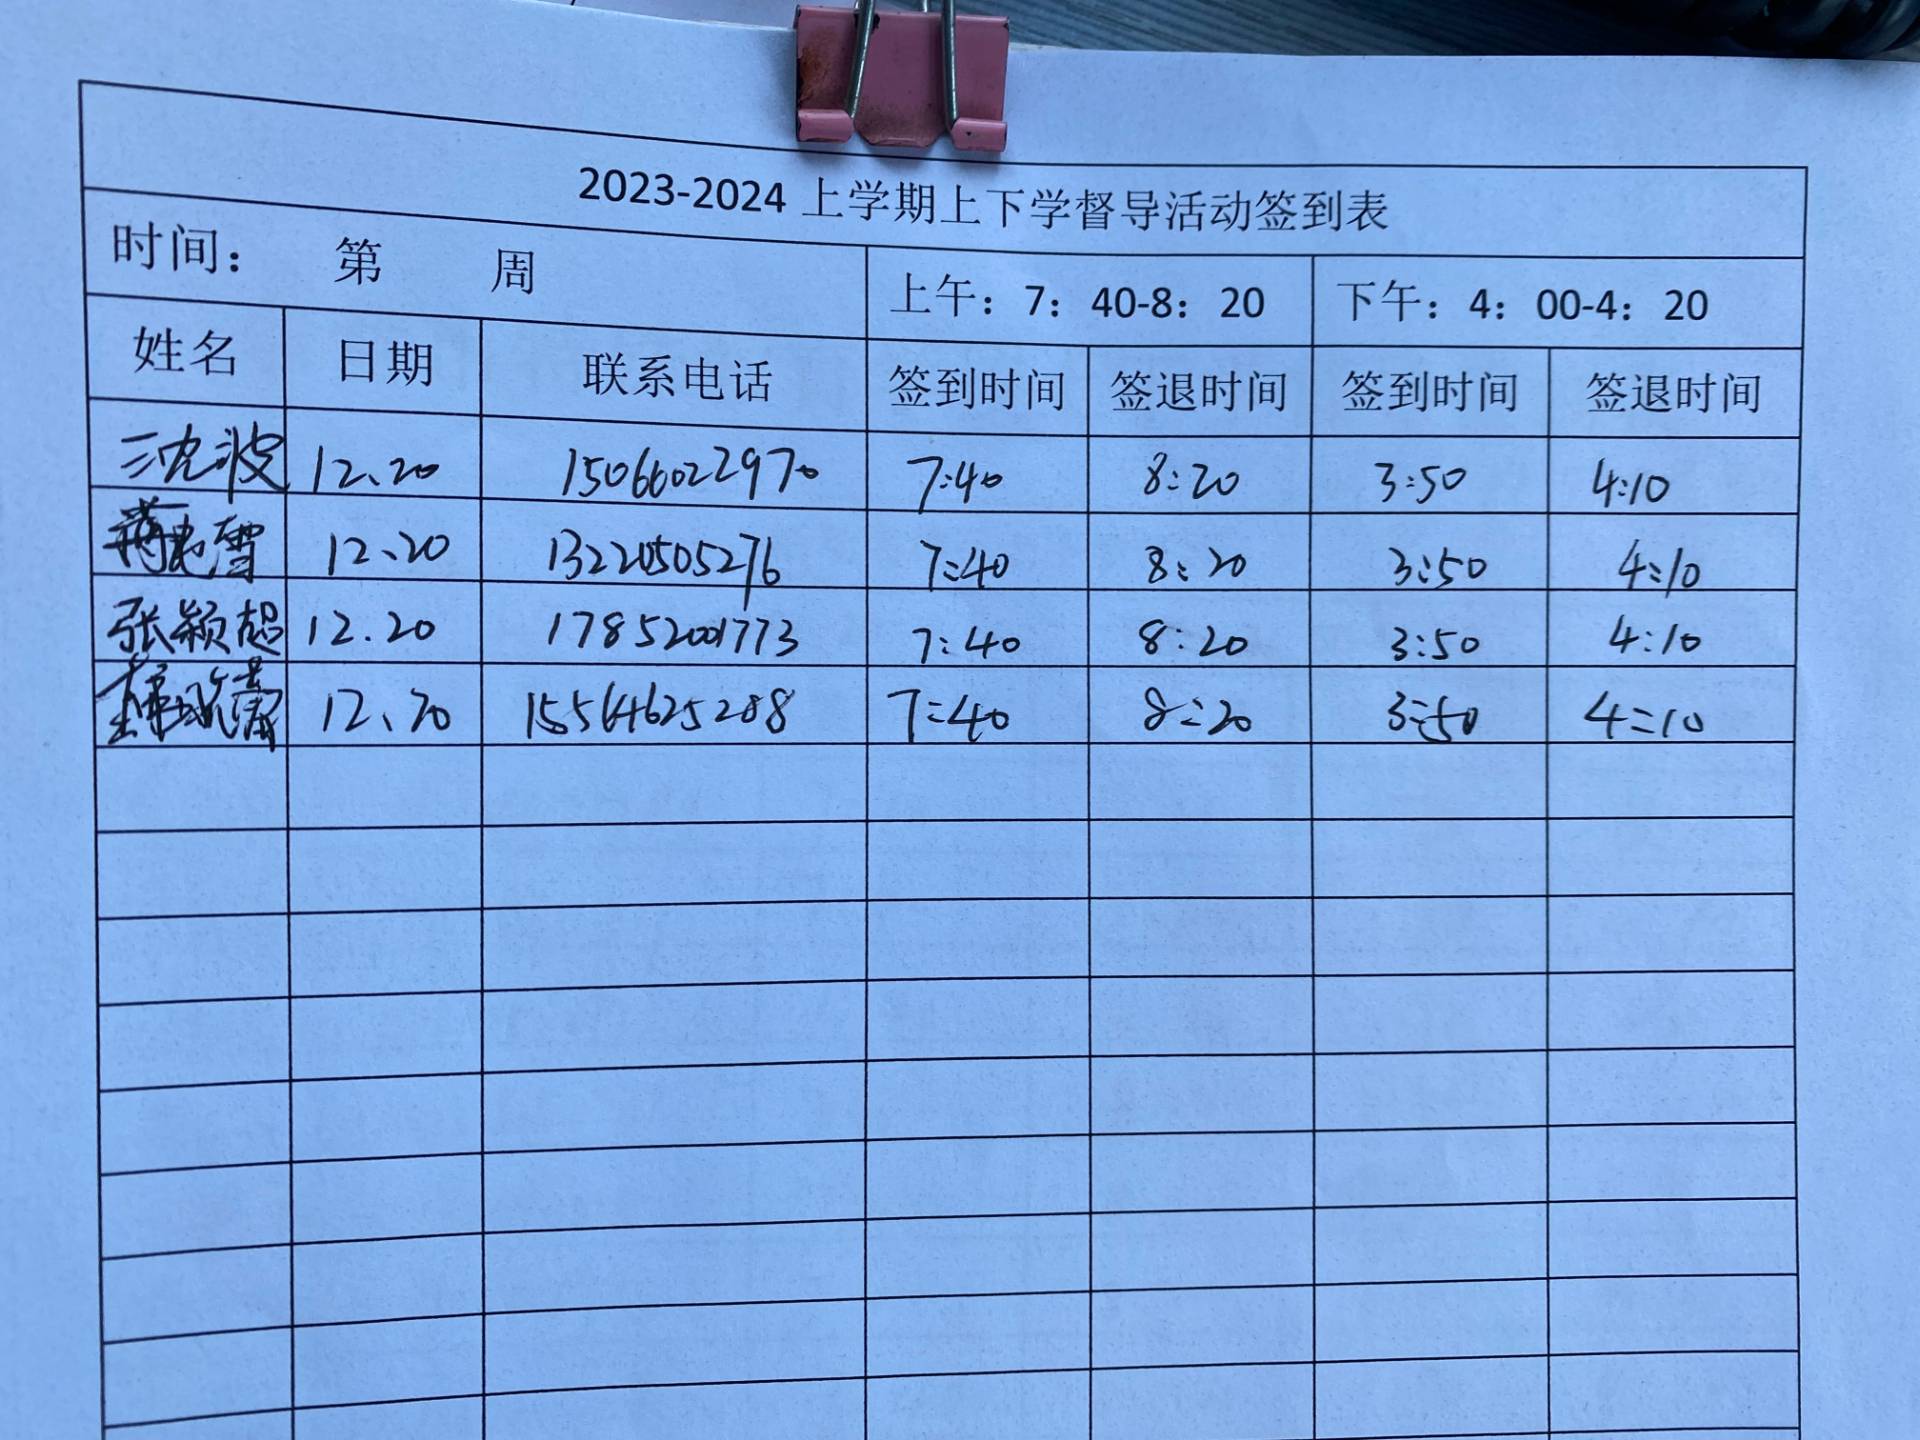 2023-2024 上学期上下学督导活动签到表
时间： 第 周 上午：7：40-8：20 下午：4：00-4：20
姓名 日期 联系电话 签到时间 签退时间 签到时间 签退时间
波 12、20 15066022970 7:40 8:20 3:50 4:10
雪 12、20 13220505276 7:40 8:20 3:50 4:10
张颖超 12.20 17852001773 7:40 8:20 3:50 4:10
12、20 15564625288 7:40 8:20 3:50 4:10